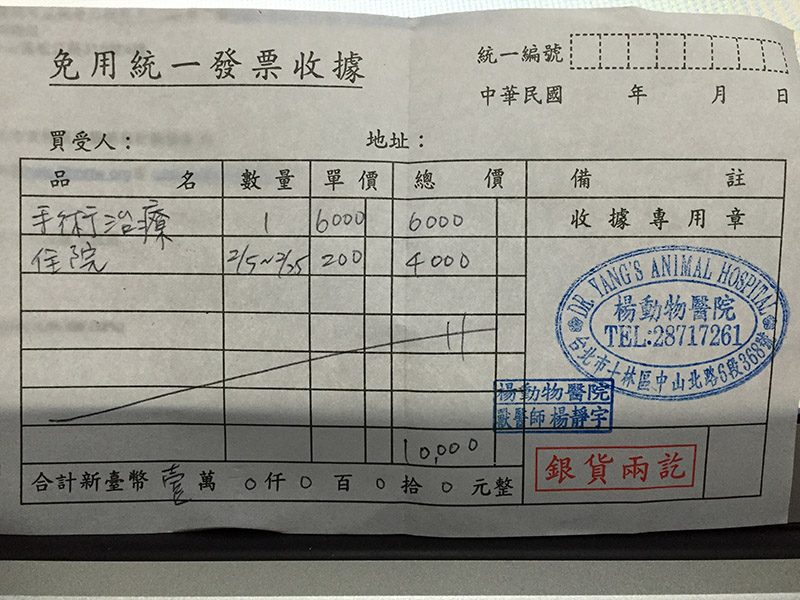 免用統一發票收據
統一編號
中華民國 年 月 日
買受人： 地址：
品名 數量 單價 總價 備註
手術治療 1 6000 6000 收據專用章
住院 2/5~2/25 200 4000
DR. YANG'S ANIMAL HOSPITAL
楊動物醫院
TEL:28717261
台北市士林區中山北路6段368號
楊動物醫院
獸醫師 楊靜宇
10,000
合計新臺幣 壹 萬 0 仟 0 百 0 拾 0 元整
銀貨兩訖